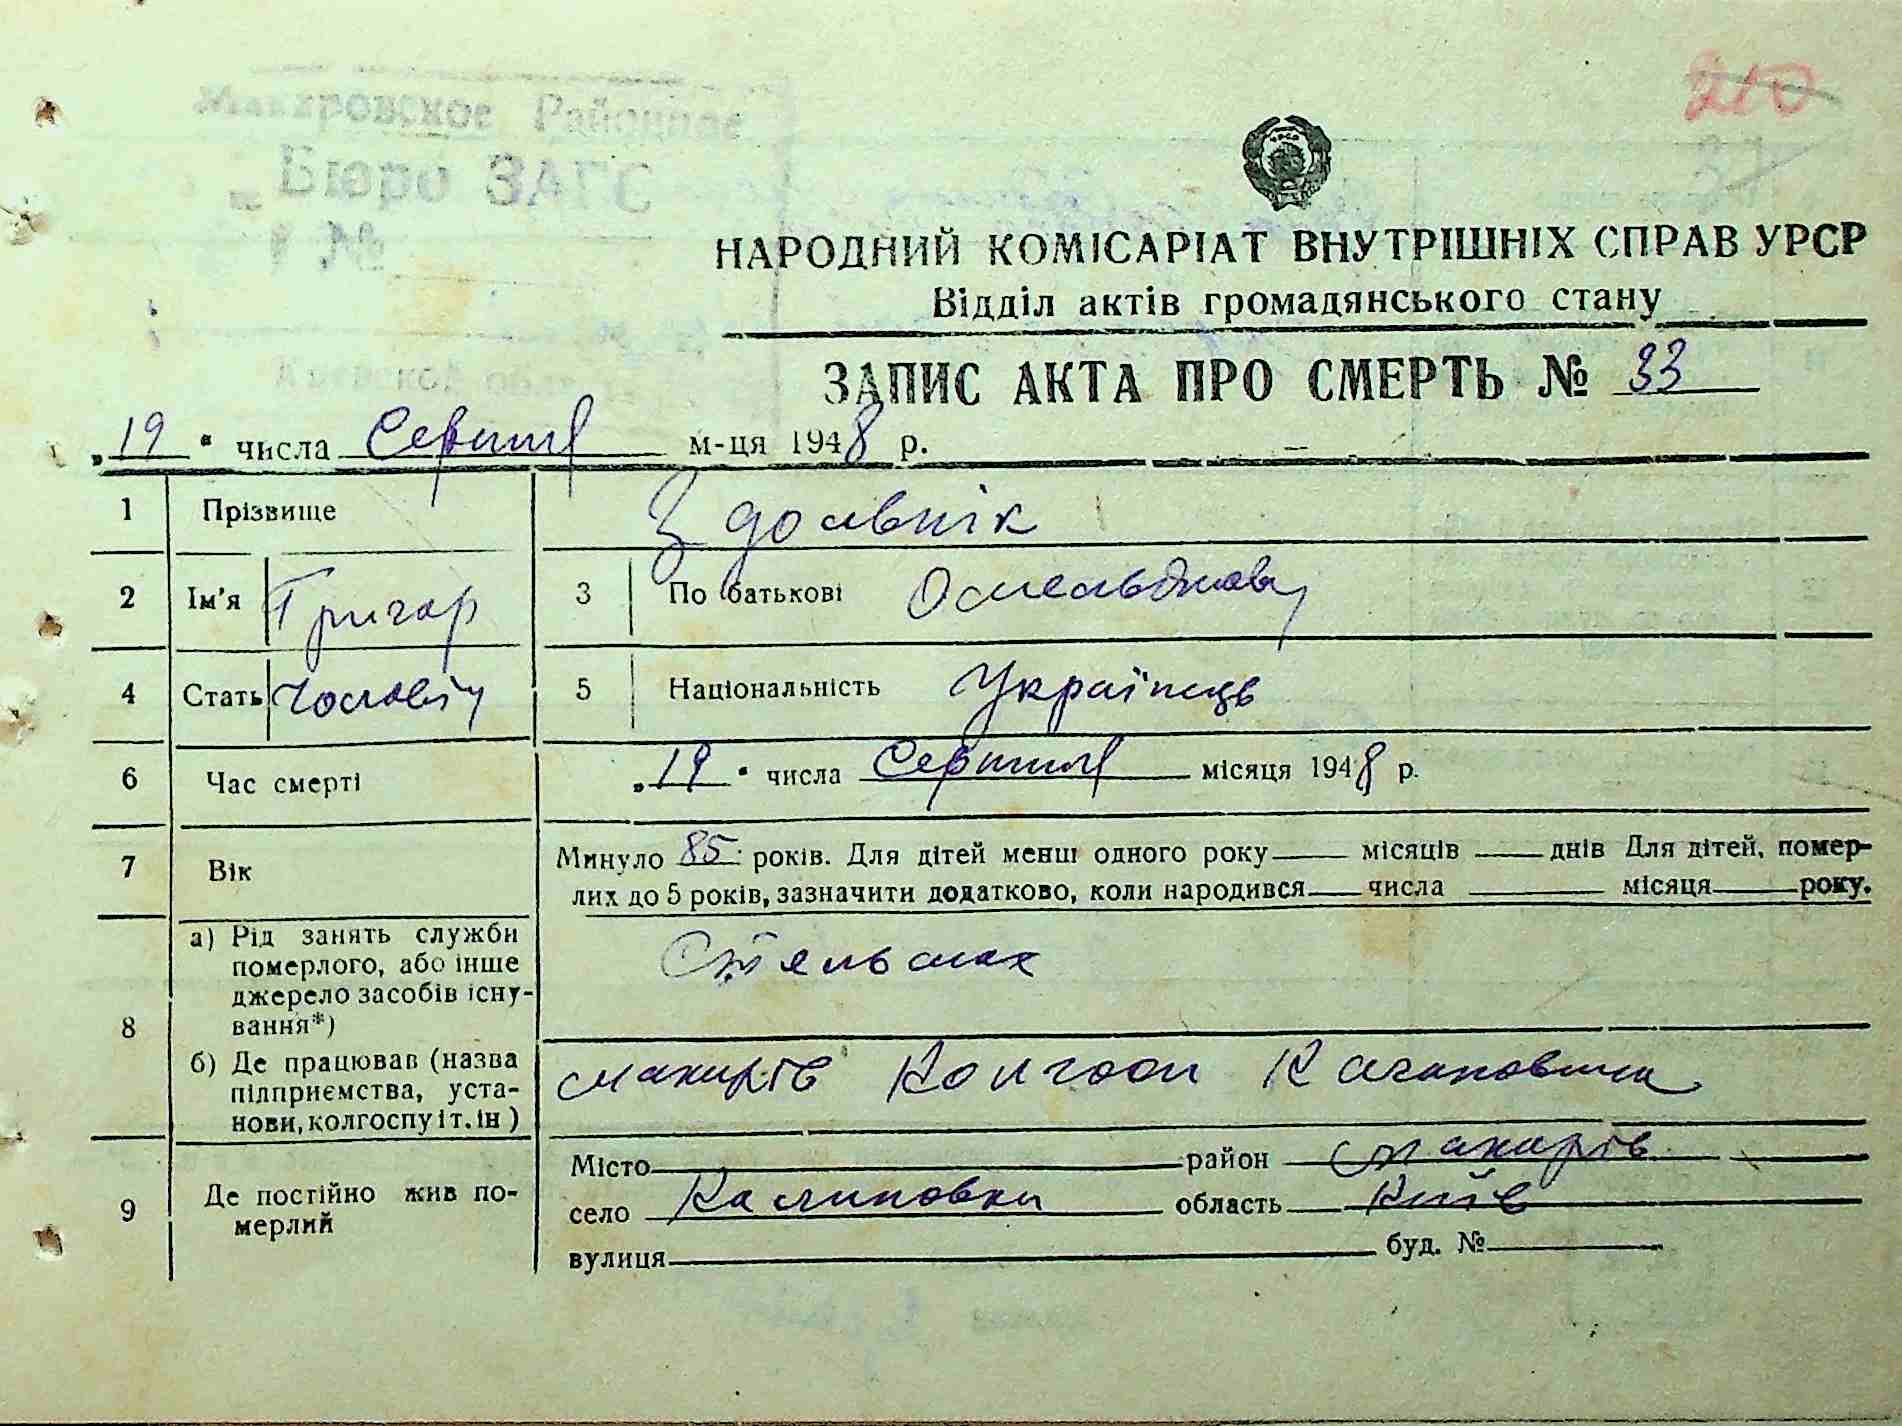 210
Макаровское Районное
Бюро ЗАГС
№
Киевской обл
НАРОДНИЙ КОМІСАРІАТ ВНУТРІШНІХ СПРАВ УРСР
Відділ актів громадянського стану
ЗАПИС АКТА ПРО СМЕРТЬ № 33
„19“ числа Серпня м-ця 1948 р.
1 Прізвище Здолвнік
2 Ім'я Григор 3 По батькові
4 Стать Чоловіч 5 Національність Українець
6 Час смерті „19“ числа Серпня місяця 1948 р.
7 Вік Минуло 85 років. Для дітей менш одного року місяців днів Для дітей, помер-
лих до 5 років, зазначити додатково, коли народився числа місяця року.
8 а) Рід занять служби
померлого, або інше
джерело засобів існу-
вання*)
Стельмах
б) Де працював (назва
підприємства, уста-
нови, колгоспу і т. ін)
Макирів Колгосп Кагановича
9 Де постійно жив по-
мерлий
Місто район Макирів
село Калиновка область Київ
вулиця буд. №